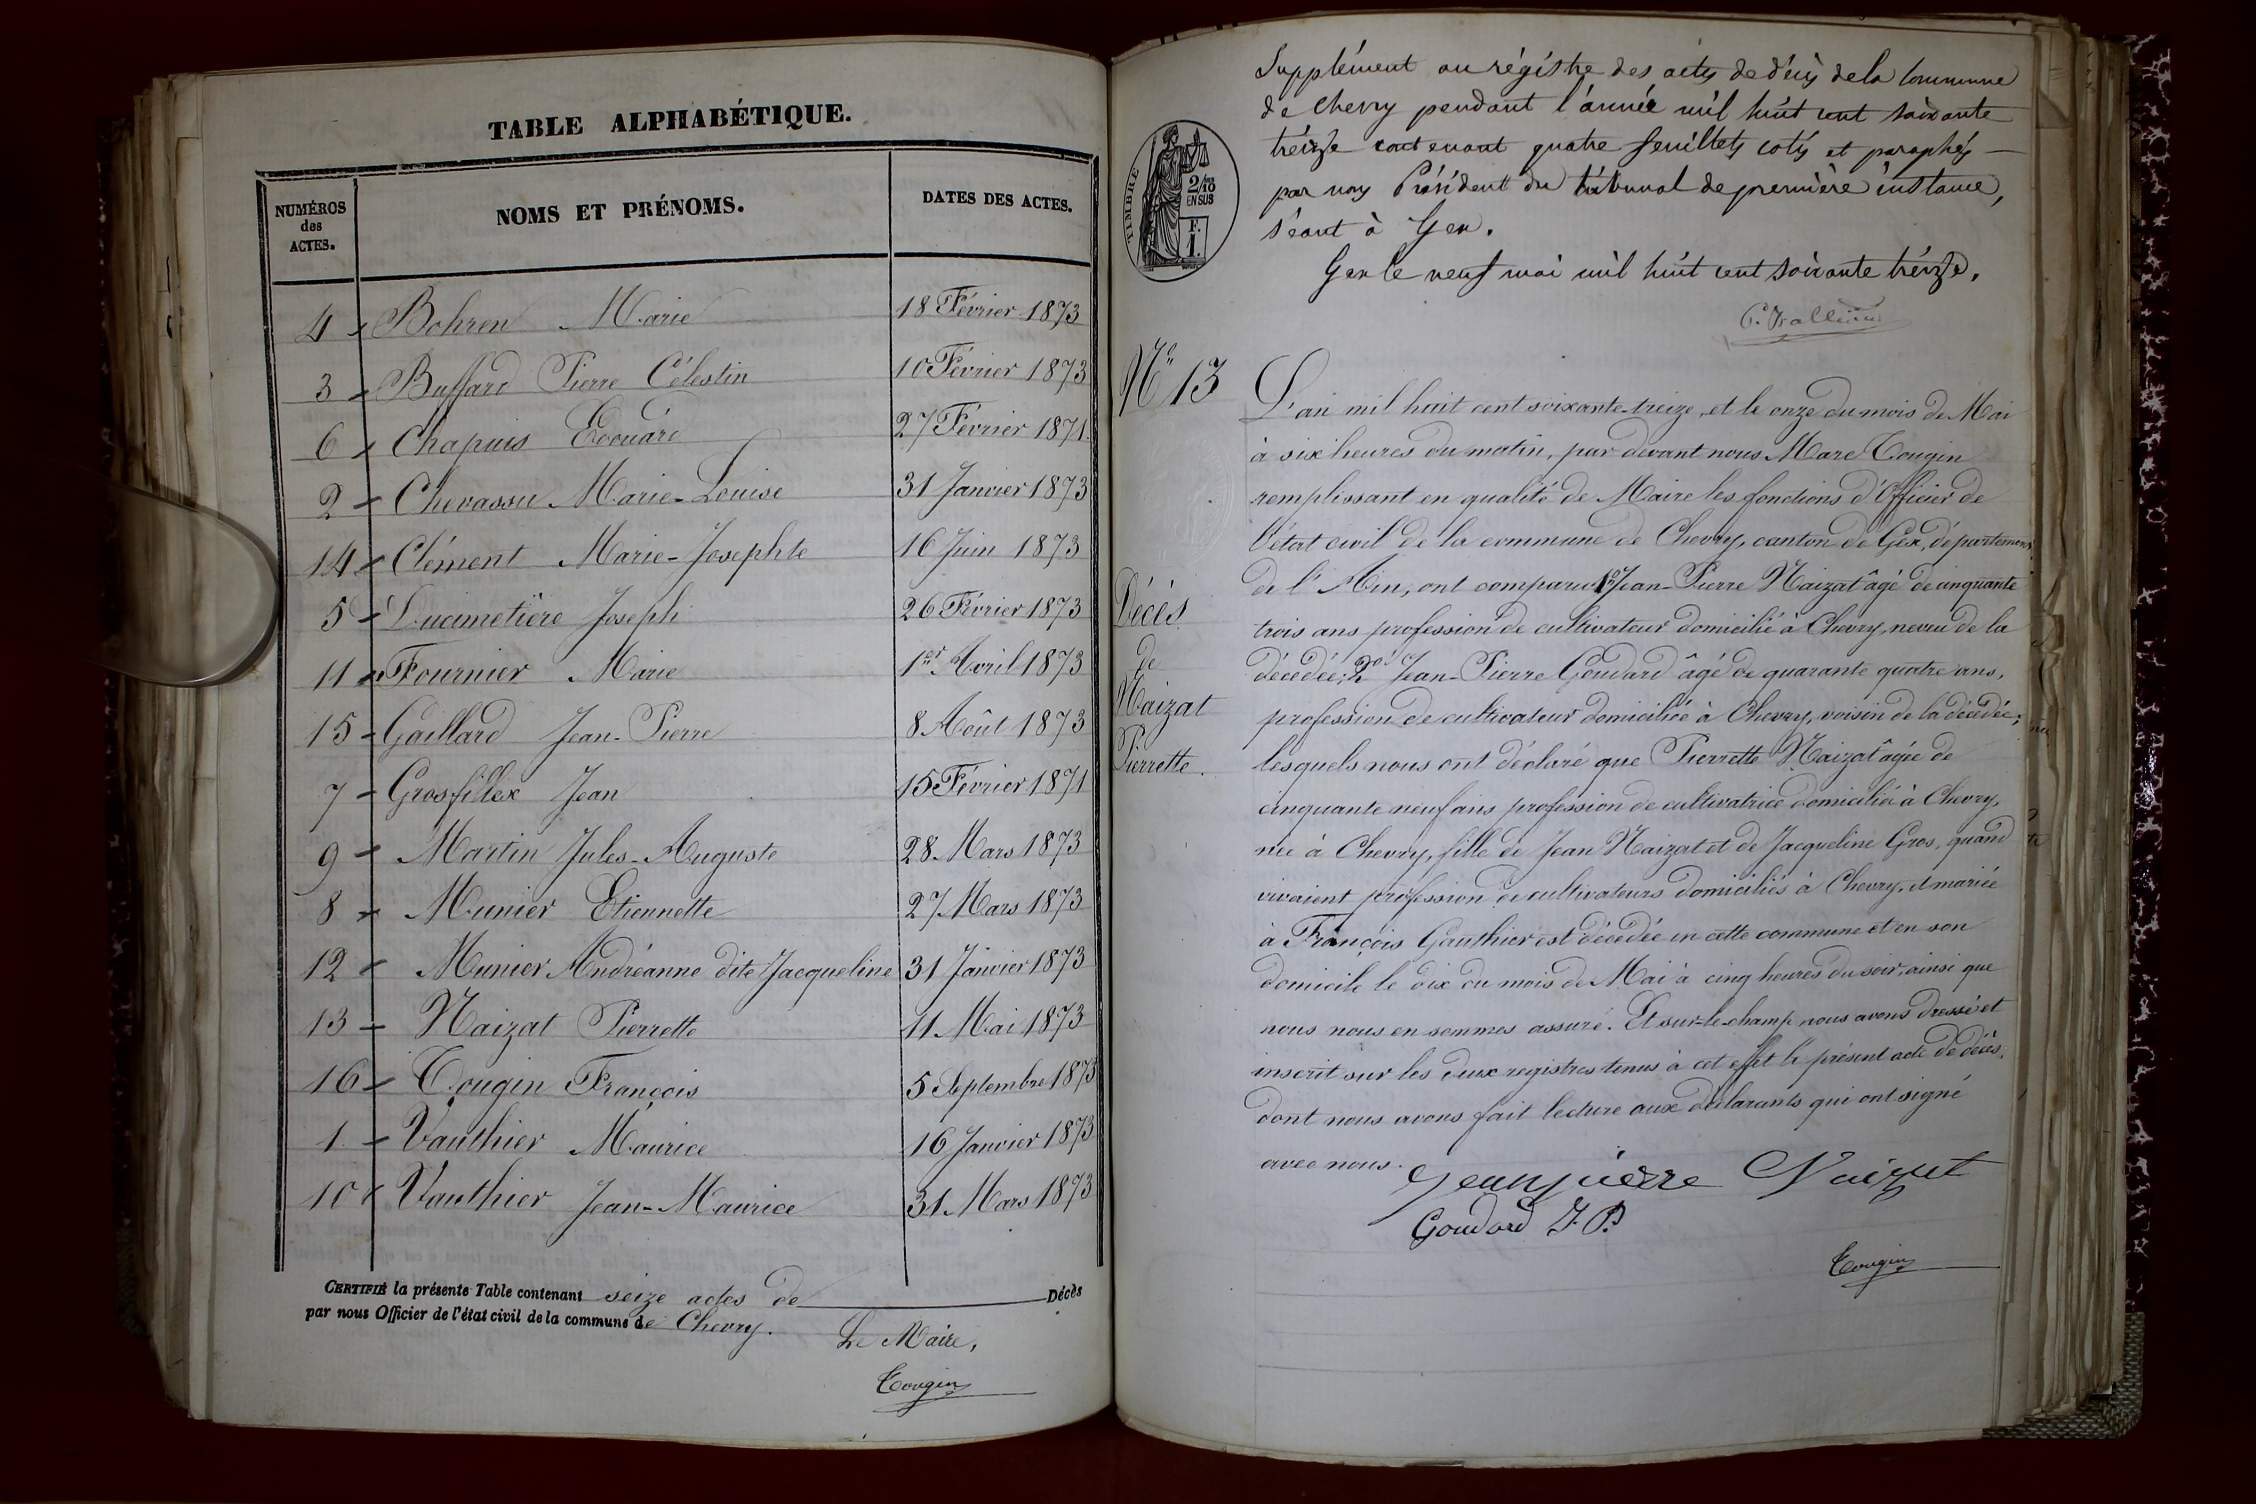 TABLE ALPHABÉTIQUE.
NUMÉROS des ACTES. NOMS ET PRÉNOMS. DATES DES ACTES.
4 Bohren Marie 18 Février 1873
3 Buffard Pierre Célestin 10 Février 1873
6 Chapuis Edouard 27 Février 1871
2 Chevassu Marie-Louise 31 Janvier 1873
14 Clément Marie-Josephte 16 Juin 1873
5 Ducimetière Joseph 26 Février 1873
11 Fournier Marie 1er Avril 1873
15 Gaillard Jean-Pierre 8 Août 1873
7 Grosfillex Jean 15 Février 1871
9 Martin Jules-Auguste 28 Mars 1873
8 Munier Etiennette 27 Mars 1873
12 Munier Andréanne dite Jacqueline 31 Janvier 1873
13 Naizat Pierrette 11 Mai 1873
16 Tougin François 5 Septembre 1873
1 Vauthier Maurice 16 Janvier 1873
10 Vauthier Jean-Maurice 31 Mars 1873
CERTIFIÉ la présente Table contenant seize actes de Décès
par nous Officier de l'état civil de la commune de Chevry.
Le Maire,
Tougin
TIMBRE
2/10
EN SUS
F.
1.
Supplément au régistre des actes de décès de la Commune
de Chevry pendant l'année mil huit cent soixante
treize contenant quatre feuillets cotés et paraphés
par nous Président du tribunal de première instance,
séant à Gex.
Gex le neuf mai mil huit cent soixante treize.
No 13
Décès
de
Naizat
Pierrette.
L'an mil huit cent soixante-treize, et le onze du mois de Mai
à six heures du matin, par devant nous Marc Tougin
remplissant en qualité de Maire les fonctions d'Officier de
l'état civil de la commune de Chevry, canton de Gex, département
de l'Ain, ont comparu 1o Jean-Pierre Naizat âgé de cinquante
trois ans profession de cultivateur domicilié à Chevry, neveu de la
décédée; 2o Jean-Pierre Goudard âgé de quarante quatre ans,
profession de cultivateur domiciliée à Chevry, voisin de la décédée;
lesquels nous ont déclaré que Pierrette Naizat âgée de
cinquante neuf ans profession de cultivatrice domiciliée à Chevry,
née à Chevry, fille de Jean Naizat et de Jacqueline Gros, quand
vivaient profession de cultivateurs domiciliés à Chevry, et mariée
à François Gauthier est décédée en cette commune et en son
domicile le dix du mois de Mai à cinq heures du soir, ainsi que
nous nous en sommes assuré. Et sur-le-champ nous avons dressé et
inscrit sur les deux registres tenus à cet effet le présent acte de décès,
dont nous avons fait lecture aux déclarants qui ont signé
avec nous.
Jeanpierre Naizat
Goudard J. P.
Tougin